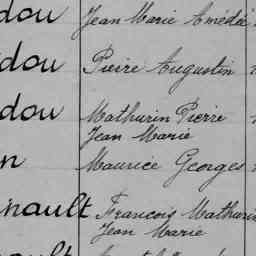 dou Jean Marie Amédée
dou Pierre Augustin
dou Mathurin Pierre
Jean Marie
n Maurice Georges
nault François Mathurin
Jean Marie